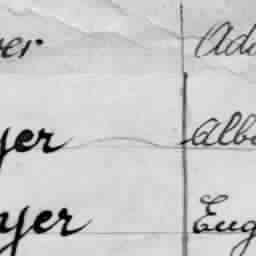 er Ad
yer Alb
yer Eug